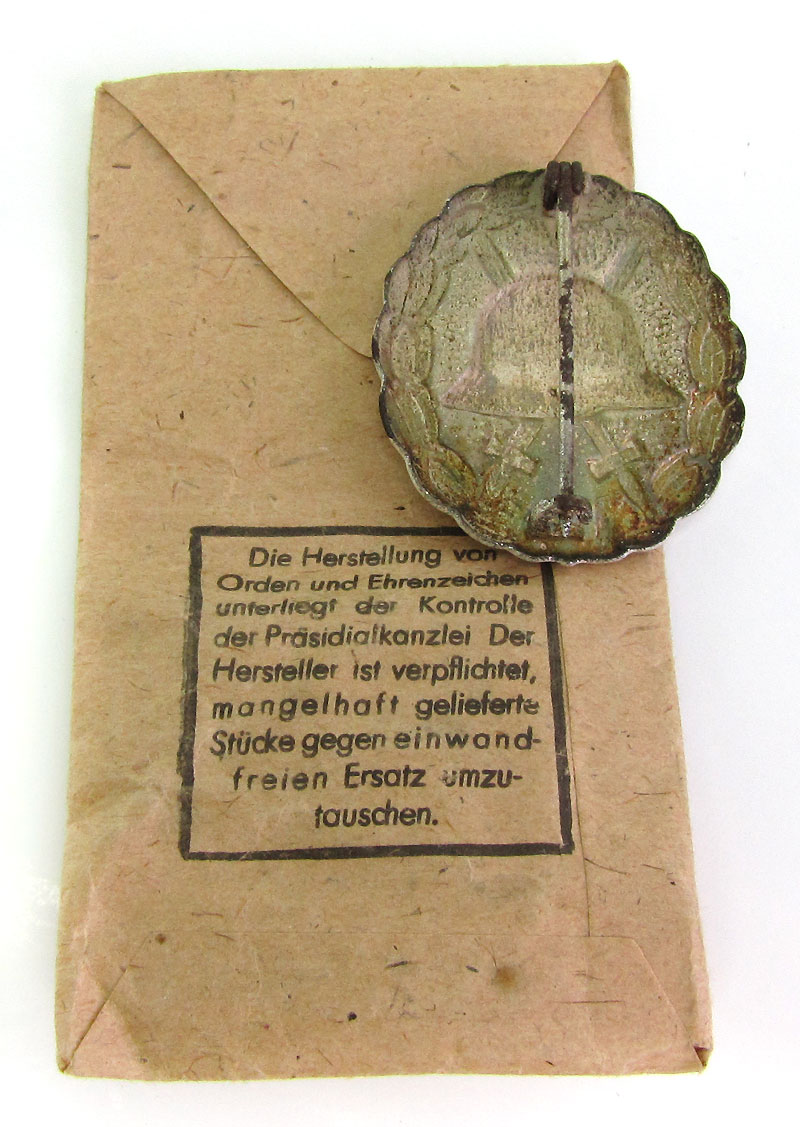 Die Herstellung von
Orden und Ehrenzeichen
unterliegt der Kontrolle
der Präsidialkanzlei Der
Hersteller ist verpflichtet,
mangelhaft gelieferte
Stücke gegen einwand-
freien Ersatz umzu-
tauschen.